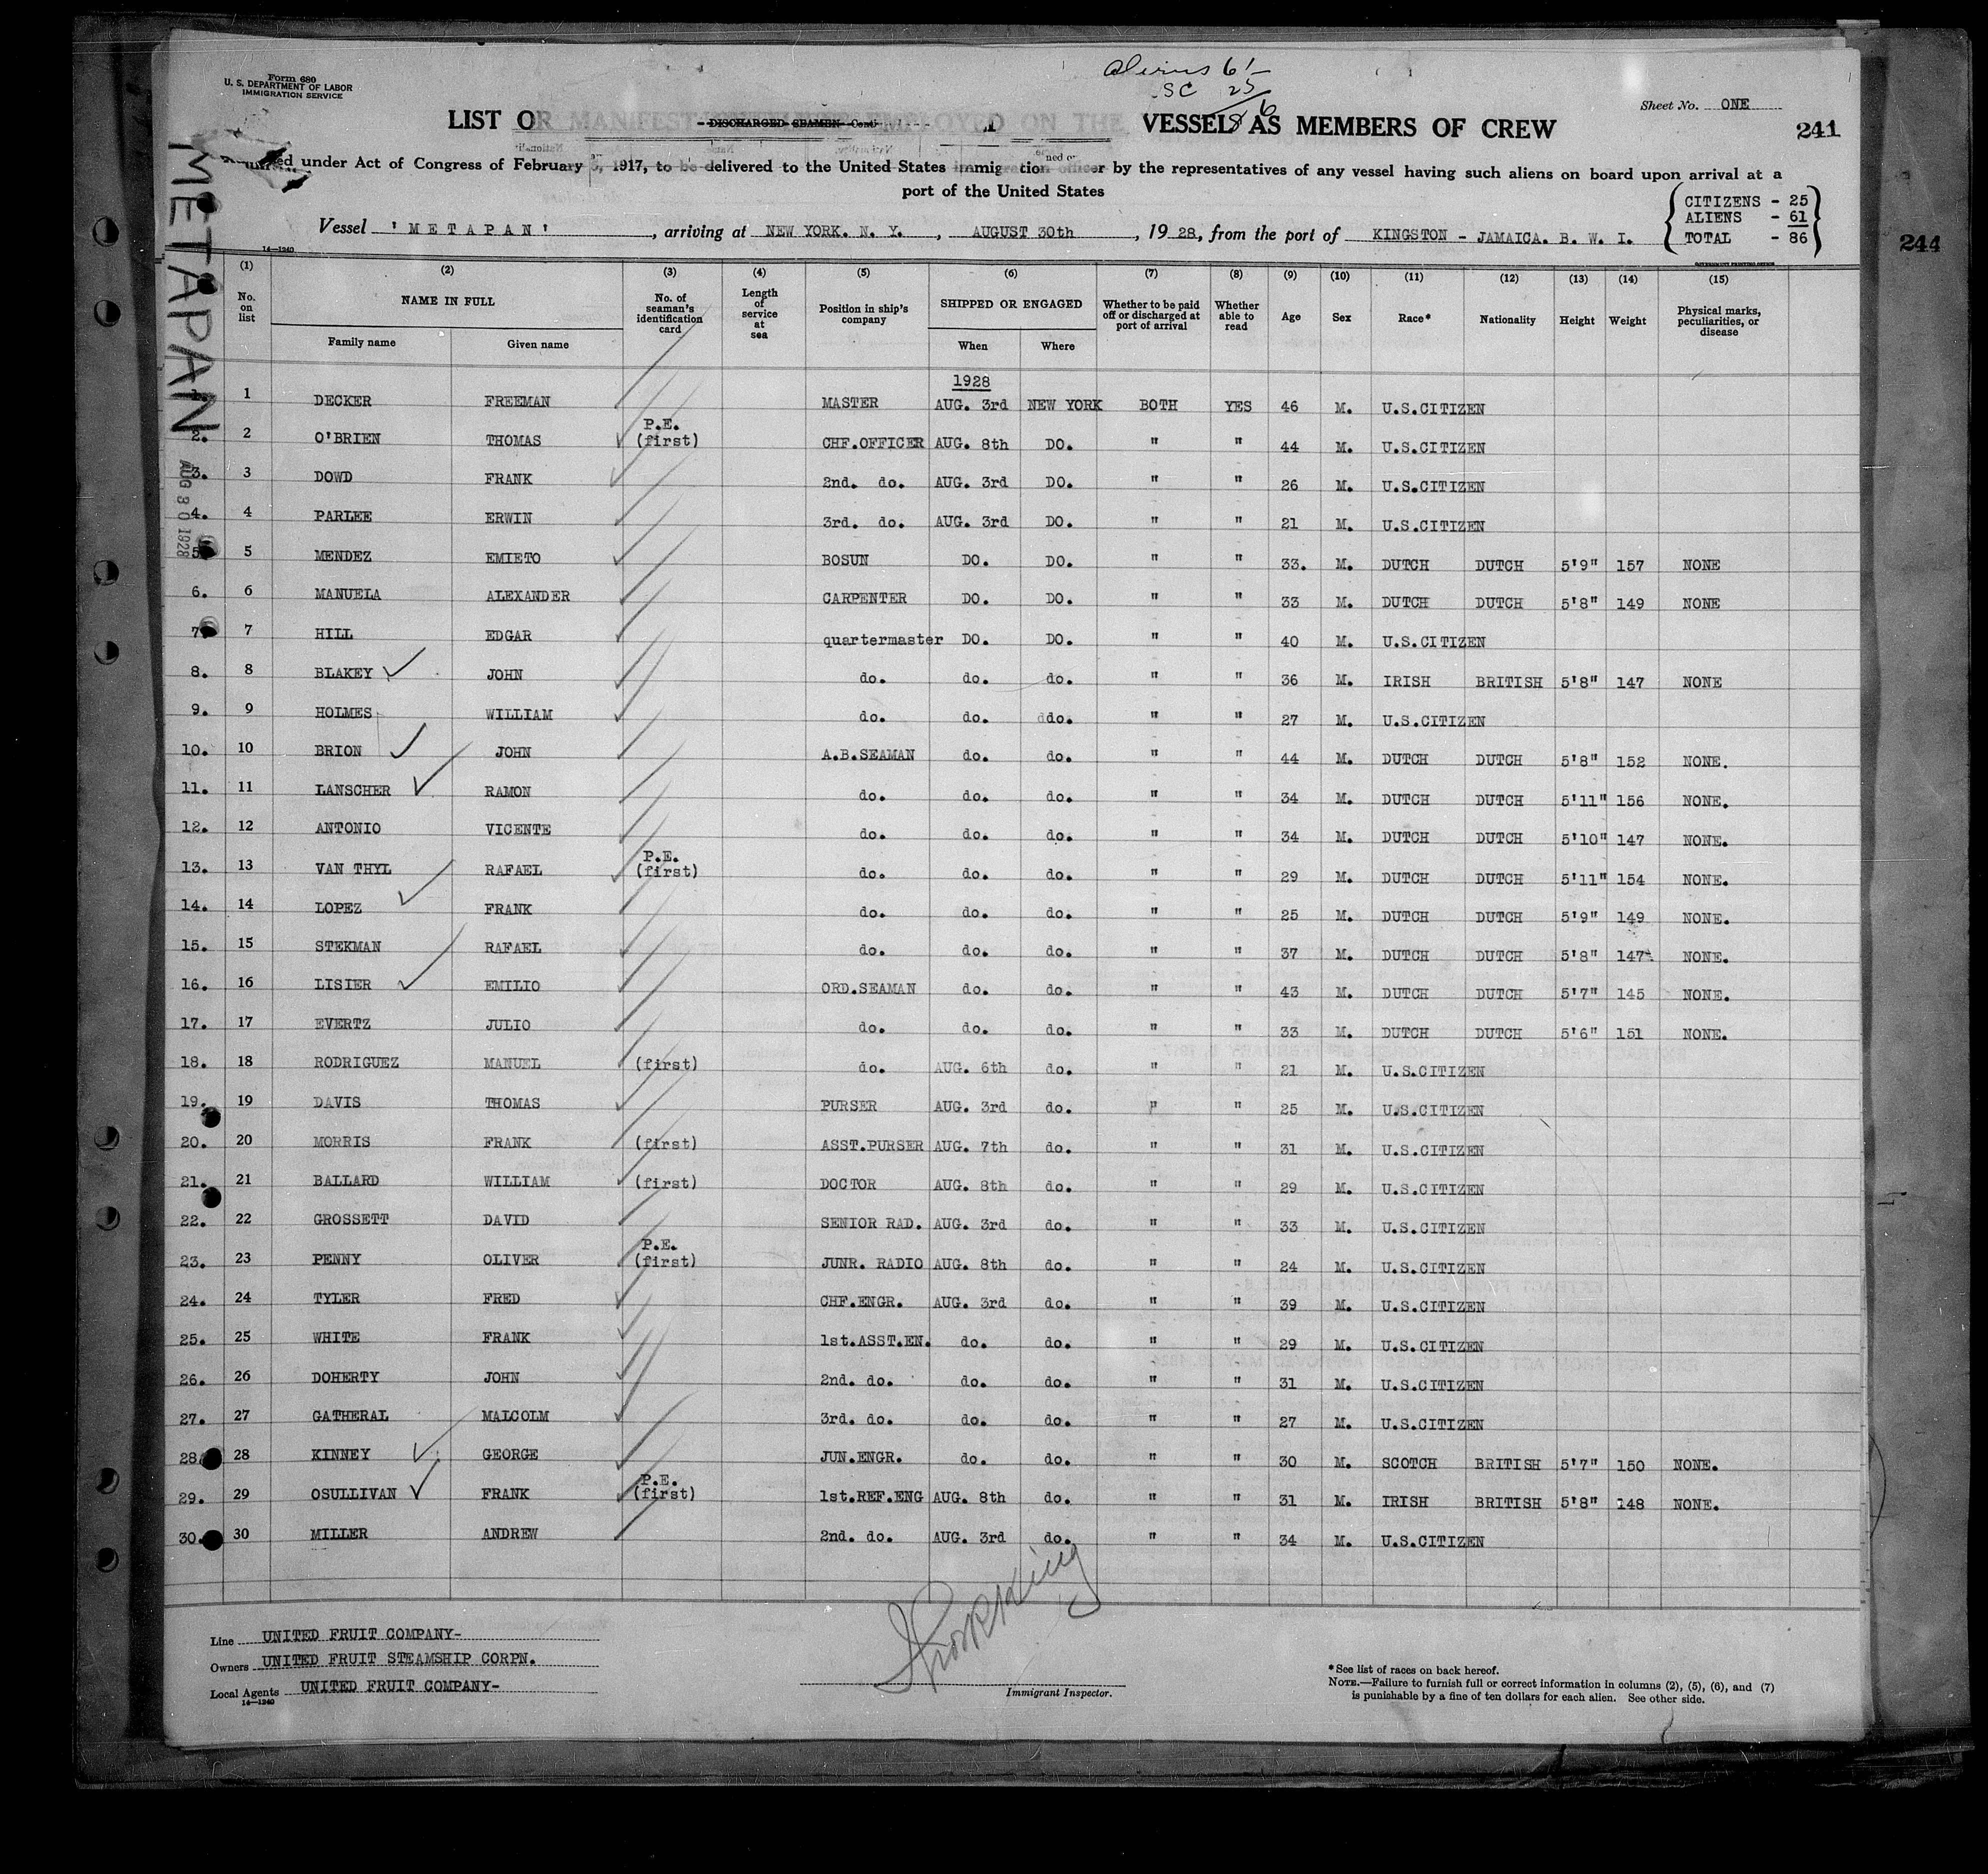 Form 680
U. S. DEPARTMENT OF LABOR
IMMIGRATION SERVICE
Aliens 61
SC 25
86
Sheet No. ONE
LIST OR MANIFEST EMPLOYED ON THE VESSEL AS MEMBERS OF CREW
DISCHARGED SEAMEN Cont
241
under Act of Congress of February 5, 1917, to be delivered to the United States immigration officer by the representatives of any vessel having such aliens on board upon arrival at a
port of the United States
CITIZENS - 25
ALIENS - 61
TOTAL - 86
Vessel 'METAPAN', arriving at NEW YORK. N. Y., AUGUST 30th, 1928, from the port of KINGSTON - JAMAICA. B. W. I.
244
METAPAN
AUG 30 1928
14—1240
GOVERNMENT PRINTING OFFICE
(1) (2) (3) (4) (5) (6) (7) (8) (9) (10) (11) (12) (13) (14) (15)
No. on list NAME IN FULL No. of seaman's identification card Length of service at sea Position in ship's company SHIPPED OR ENGAGED Whether to be paid off or discharged at port of arrival Whether able to read Age Sex Race* Nationality Height Weight Physical marks, peculiarities, or disease
Family name Given name When Where
1928
1. 1 DECKER FREEMAN MASTER AUG. 3rd NEW YORK BOTH YES 46 M. U.S.CITIZEN
2. 2 O'BRIEN THOMAS P.E. (first) CHF.OFFICER AUG. 8th DO. " " 44 M. U.S.CITIZEN
3. 3 DOWD FRANK 2nd. do. AUG. 3rd DO. " " 26 M. U.S.CITIZEN
4. 4 PARLEE ERWIN 3rd. do. AUG. 3rd DO. " " 21 M. U.S.CITIZEN
5. 5 MENDEZ EMIETO BOSUN DO. DO. " " 33. M. DUTCH DUTCH 5'9" 157 NONE
6. 6 MANUELA ALEXANDER CARPENTER DO. DO. " " 33 M. DUTCH DUTCH 5'8" 149 NONE
7. 7 HILL EDGAR quartermaster DO. DO. " " 40 M. U.S.CITIZEN
8. 8 BLAKEY JOHN do. do. do. " " 36 M. IRISH BRITISH 5'8" 147 NONE
9. 9 HOLMES WILLIAM do. do. ddo. " " 27 M. U.S.CITIZEN
10. 10 BRION JOHN A.B.SEAMAN do. do. " " 44 M. DUTCH DUTCH 5'8" 152 NONE.
11. 11 LANSCHER RAMON do. do. do. " " 34 M. DUTCH DUTCH 5'11" 156 NONE.
12. 12 ANTONIO VICENTE do. do. do. " " 34 M. DUTCH DUTCH 5'10" 147 NONE.
13. 13 VAN THYL RAFAEL P.E. (first) do. do. do. " " 29 M. DUTCH DUTCH 5'11" 154 NONE.
14. 14 LOPEZ FRANK do. do. do. " " 25 M. DUTCH DUTCH 5'9" 149 NONE.
15. 15 STEKMAN RAFAEL do. do. do. " " 37 M. DUTCH DUTCH 5'8" 147 NONE.
16. 16 LISIER EMILIO ORD.SEAMAN do. do. " " 43 M. DUTCH DUTCH 5'7" 145 NONE.
17. 17 EVERTZ JULIO do. do. do. " " 33 M. DUTCH DUTCH 5'6" 151 NONE.
18. 18 RODRIGUEZ MANUEL (first) do. AUG. 6th do. " " 21 M. U.S.CITIZEN
19. 19 DAVIS THOMAS PURSER AUG. 3rd do. " " 25 M. U.S.CITIZEN
20. 20 MORRIS FRANK (first) ASST.PURSER AUG. 7th do. " " 31 M. U.S.CITIZEN
21. 21 BALLARD WILLIAM (first) DOCTOR AUG. 8th do. " " 29 M. U.S.CITIZEN
22. 22 GROSSETT DAVID SENIOR RAD. AUG. 3rd do. " " 33 M. U.S.CITIZEN
23. 23 PENNY OLIVER P.E. (first) JUNR. RADIO AUG. 8th do. " " 24 M. U.S.CITIZEN
24. 24 TYLER FRED CHF.ENGR. AUG. 3rd do. " " 39 M. U.S.CITIZEN
25. 25 WHITE FRANK 1st.ASST.EN. do. do. " " 29 M. U.S.CITIZEN
26. 26 DOHERTY JOHN 2nd. do. do. do. " " 31 M. U.S.CITIZEN
27. 27 GATHERAL MALCOLM 3rd. do. do. do. " " 27 M. U.S.CITIZEN
28. 28 KINNEY GEORGE JUN.ENGR. do. do. " " 30 M. SCOTCH BRITISH 5'7" 150 NONE.
29. 29 OSULLIVAN FRANK P.E. (first) 1st.REF.ENG AUG. 8th do. " " 31 M. IRISH BRITISH 5'8" 148 NONE.
30. 30 MILLER ANDREW 2nd. do. AUG. 3rd do. " " 34 M. U.S.CITIZEN
Line UNITED FRUIT COMPANY-
Owners UNITED FRUIT STEAMSHIP CORPN.
Local Agents UNITED FRUIT COMPANY-
14—1240
Immigrant Inspector.
*See list of races on back hereof.
NOTE.—Failure to furnish full or correct information in columns (2), (5), (6), and (7)
is punishable by a fine of ten dollars for each alien. See other side.